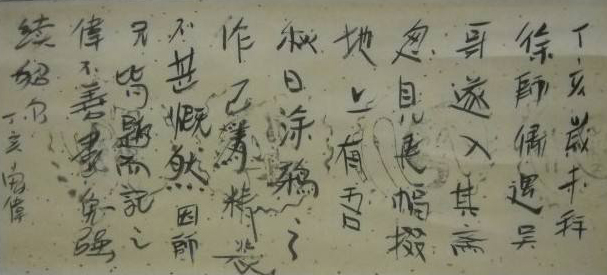 丁亥歲末拜
徐師偶遇吴
哥遂入其斋
忽見尾幅掇
地上有吾
秋日涂鴉之
作已為精裝
不甚慨然因師
兄皆題而記之
偉不善書勉强
续貂尔 丁亥 偉